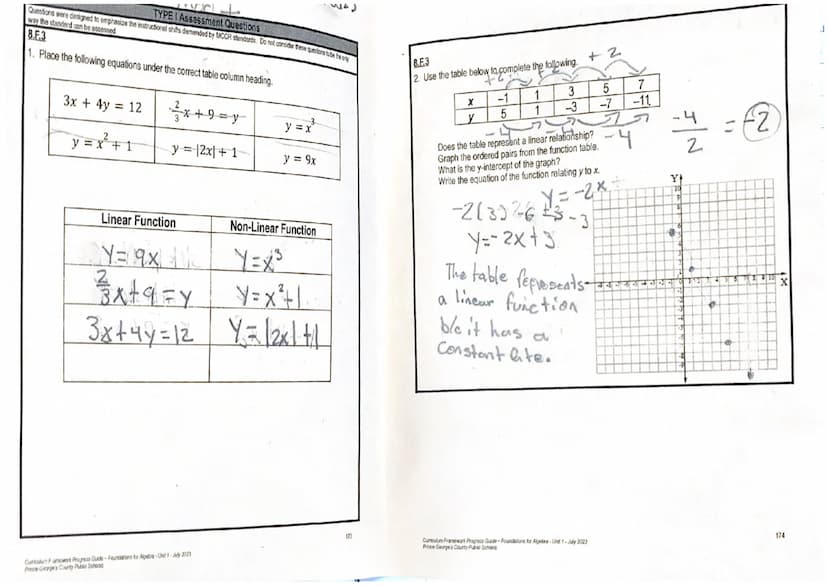 TYPE I Assessment Questions
Questions were designed to emphasize the instructional shifts demanded by MCCR standards. Do not consider these questions to be the only
way the standard can be assessed.
8.F.3
1. Place the following equations under the correct table column heading.
3x + 4y = 12
2/3 x + 9 = y
y = x^3
y = x^2 + 1
y = |2x| + 1
y = 9x
Linear Function
Non-Linear Function
y = 9x
y = x^3
2/3x + 9 = y
y = x^2 + 1
3x + 4y = 12
y = |2x| + 1
Curriculum Framework Progress Guide – Foundations for Algebra - Unit 1 - July 2023
Prince George's County Public Schools
8.F.3
+2
2. Use the table below to complete the following.
+2 +2
x -1 1 3 5 7
y 5 1 -3 -7 -11
-4 -4 -4
-4/2 = -2
Does the table represent a linear relationship?
Graph the ordered pairs from the function table.
What is the y-intercept of the graph?
Write the equation of the function relating y to x.
y = -2x
-2(3) = -6 + 3 = -3
y = -2x + 3
The table represents
a linear function
b/c it has a
constant rate.
Y
X
174
Curriculum Framework Progress Guide – Foundations for Algebra - Unit 1 - July 2023
Prince George's County Public Schools